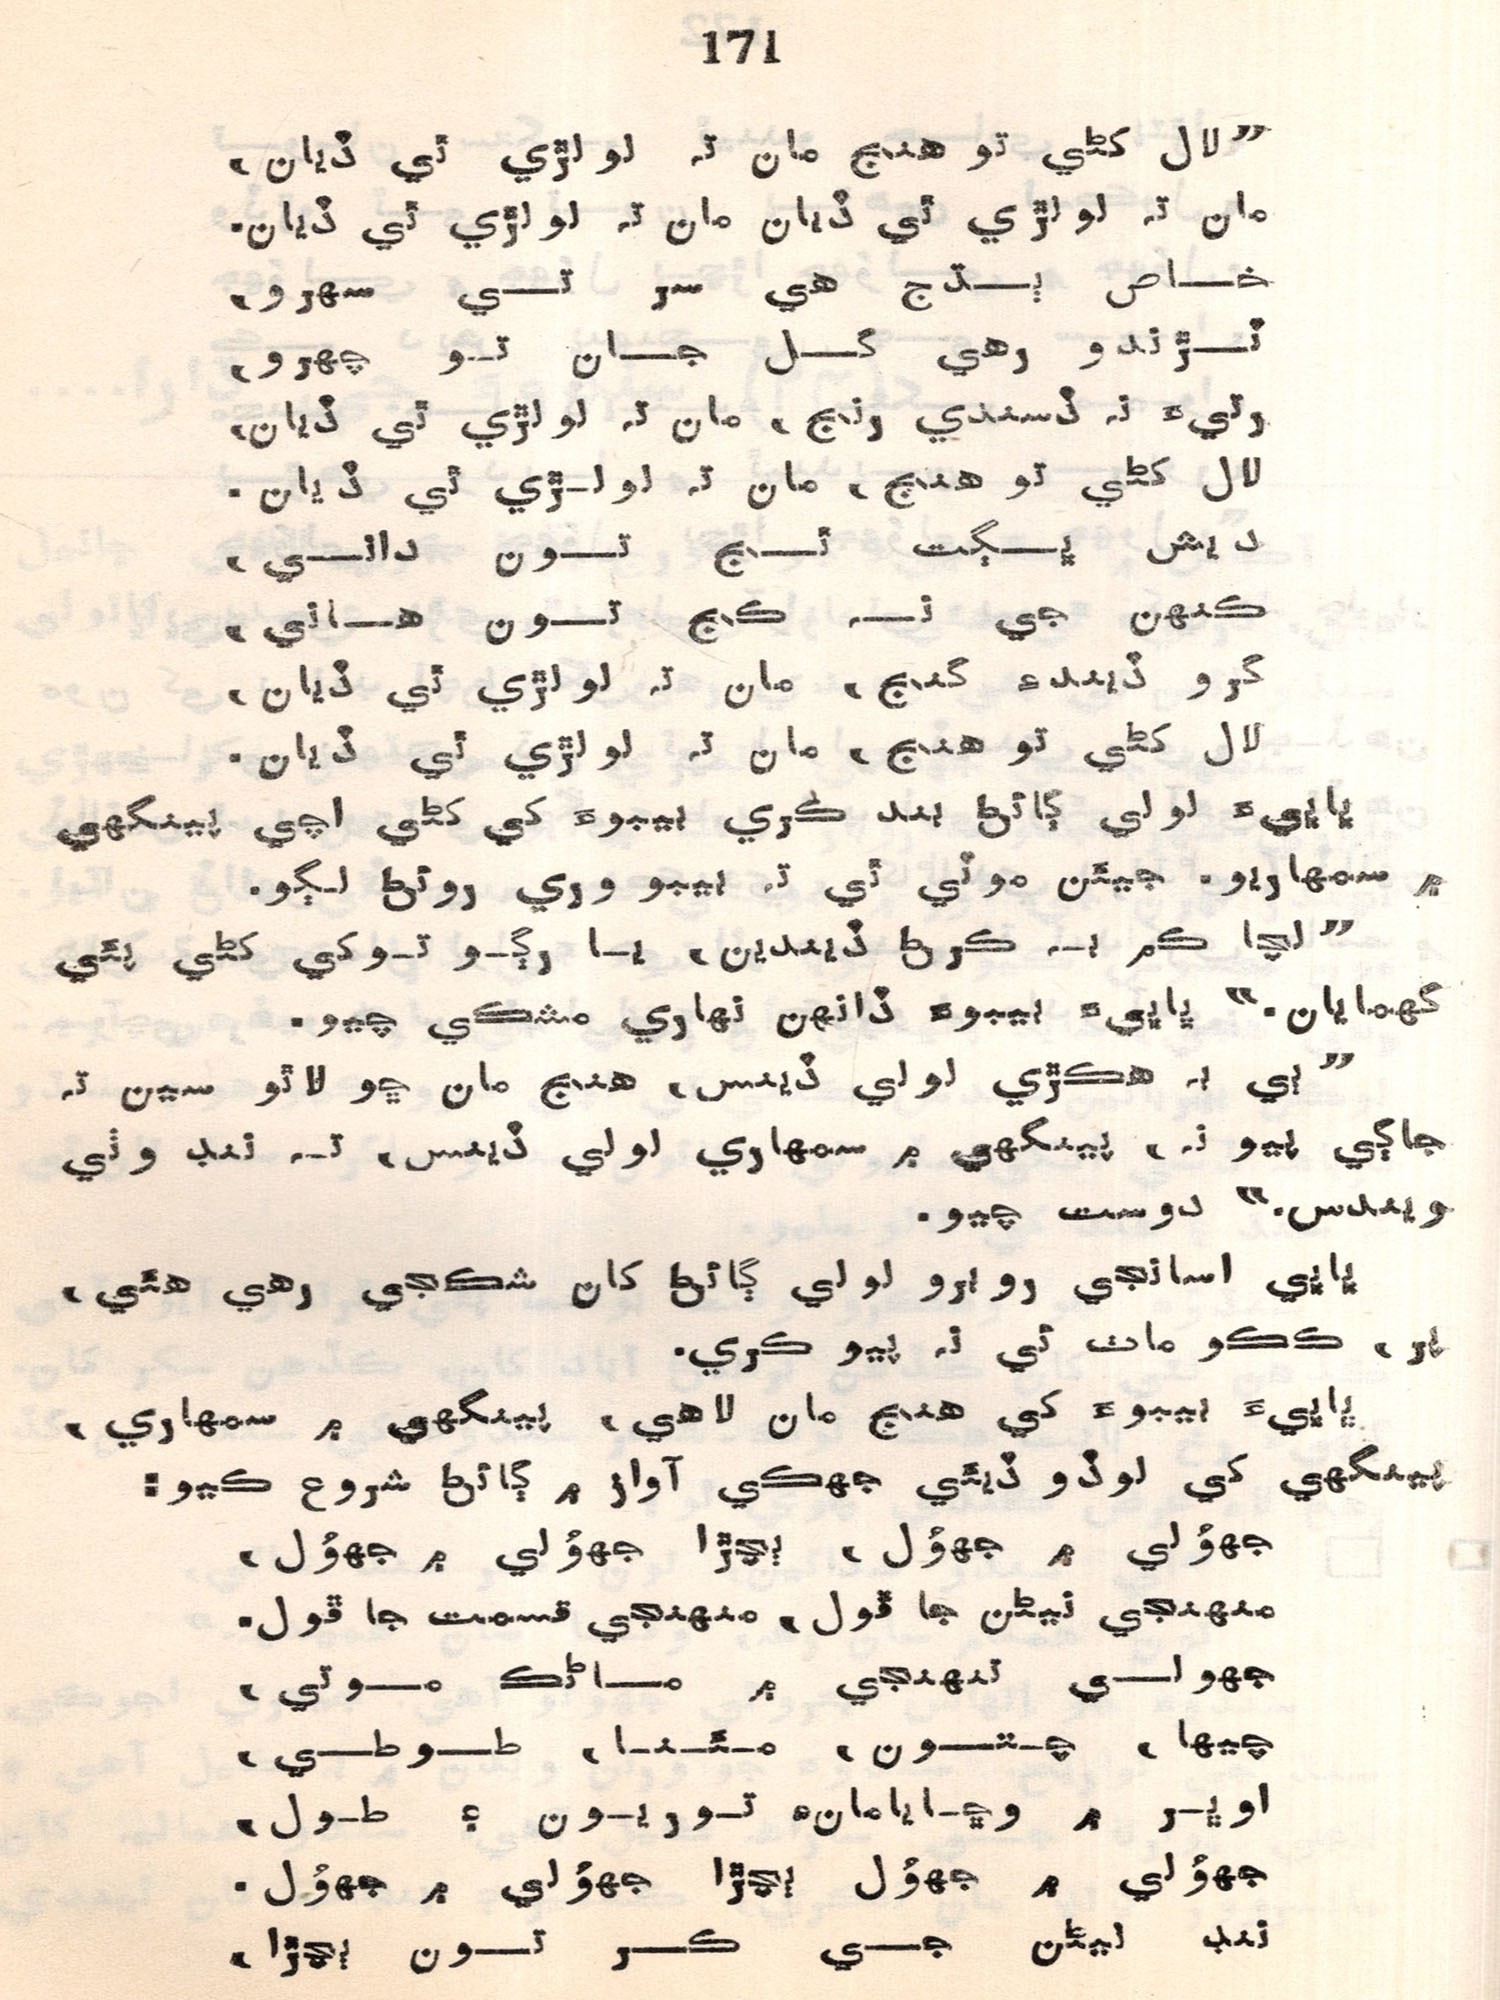 171
”لال کڻي تو هنج مان تہ لولڙي ٿي ڏيان،
مان تہ لولڙي ٿي ڏيان مان تہ لولڙي ٿي ڏيان.
خاص ٻڌج هي سر تي سهرو،
ٽڙندو رهي گل جان تو چهرو،
رتيءَ نہ ڏسندي رنج، مان تہ لولڙي ٿي ڏيان،
لال کڻي تو هنج، مان تہ لولڙي ٿي ڏيان.
ديش ڀڳت ٿج تون داني،
ڪنهن جي نہ ڪج تون هاني،
گرو ڏيندءِ گنج، مان تہ لولڙي ٿي ڏيان،
لال کڻي تو هنج، مان تہ لولڙي ٿي ڏيان.
ڀاڀيءَ لولي ڳائڻ بند ڪري ٻيبوءَ کي کڻي اچي پينگهي
۾ سمهاريو. جيئن موٽي ٿي تہ ٻيبو وري روئڻ لڳو.
”لڇا ڪم بہ ڪرڻ ڏيندين، يا رڳو توکي کڻي پئي
گهمايان.“ ڀاڀيءَ ٻيبوءَ ڏانهن نهاري مشڪي چيو.
”ٻي بہ هڪڙي لولي ڏينس، هنج مان ڇو لاٿو سين تہ
جاڳي پيو نہ، پينگهي ۾ سمهاري لولي ڏينس، تہ ننڊ وٺي
ويندس.“ دوست چيو.
ڀاڀي اسانجي روبرو لولي ڳائڻ کان شڪجي رهي هئي،
پر، ڪڪو ماٺ ٿي نہ پيو ڪري.
ڀاڀيءَ ٻيبوءَ کي هنج مان لاهي، پينگهي ۾ سمهاري،
پينگهي کي لوڏو ڏيئي جهڪي آواز ۾ ڳائڻ شروع ڪيو:
جهوُلي ۾ جهوُل، ٻچڙا جهوُلي ۾ جهوُل،
منهنجي نيڻن جا ڦول، منهنجي قسمت جا ڦول.
جهولي تنهنجي ۾ ماڻڪ موتي،
چيها، چتون، مئنا، طوطي،
اوڀر ۾ وڇايامانءِ توريون ۽ طول،
جهوُلي ۾ جهوُل ٻچڙا جهوُلي ۾ جهوُل.
ننڊ نيڻن جي ڪر تون ٻچڙا،